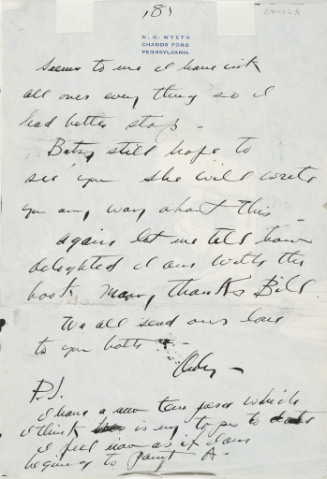 (8)
N. C. WYETH
CHADDS FORD
PENNSYLVANIA
seems to me I have ink
all over every thing so I
had better stop -
Betsy still hope to
see you she will write
you any way about this -
again let me tell how
delighted I am with the
book Many thanks Bill
We all send our love
to you both -
Andy -
P.S.
I have a new tempera which
I think is my to to date
I feel now as if I am
beginning to paint